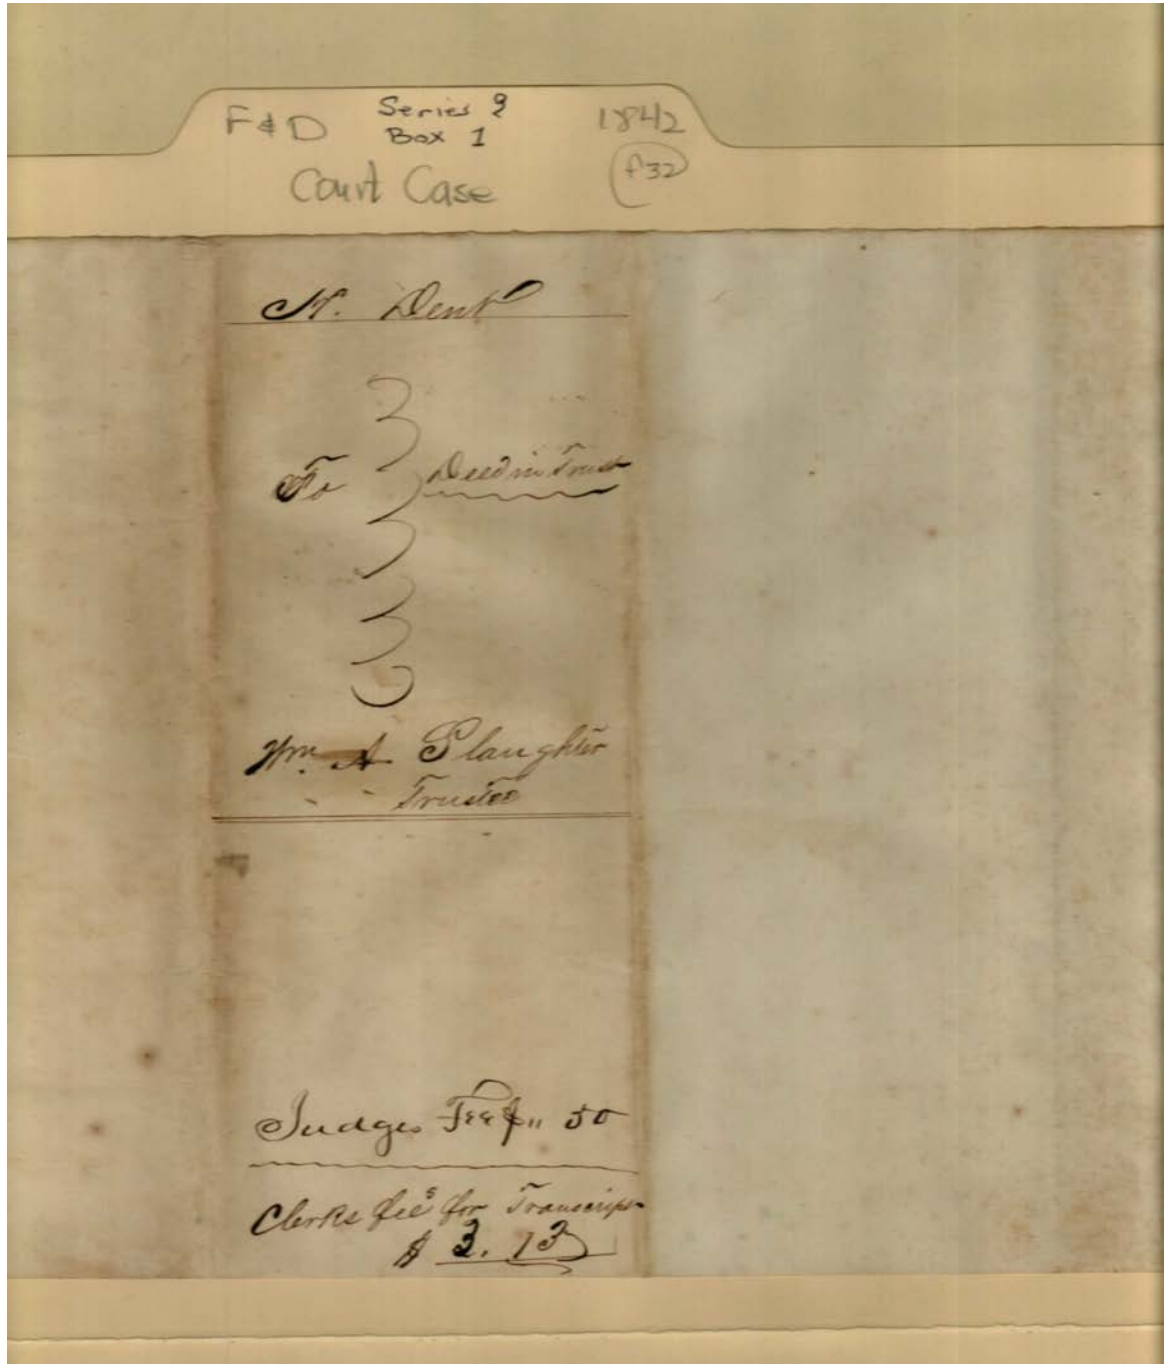 F & D Series 9 1842
Box 1
Court Case f32
N. Dent
To Deed in Trust
Wm. A. Slaughter
Trustee
Judges Fee $ " 50
Clerks fees for Transcript
$ 3. 13